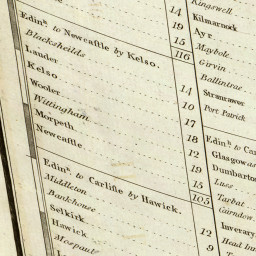 14
19
15
116
Edinr. to Newcaſtle by Kelso.
Blacksheilds
Lauder
Kelso
Wooler
Wittingham
Morpeth
Newcaſtle
14
10
17
18
12
19
15
105
Edinr. to Carliſle by Hawick.
Middleton
Bankhouse
Selkirk
Hawick
Mospaul
12
9
Kingswell
Kilmarnock
Ayr
Maybole
Girvin
Ballintrae
Stranrawer
Port Patrick
Edinr. to
Glasgow
Dumbarton
Luss
Tarbat
Cairndow
Inverary